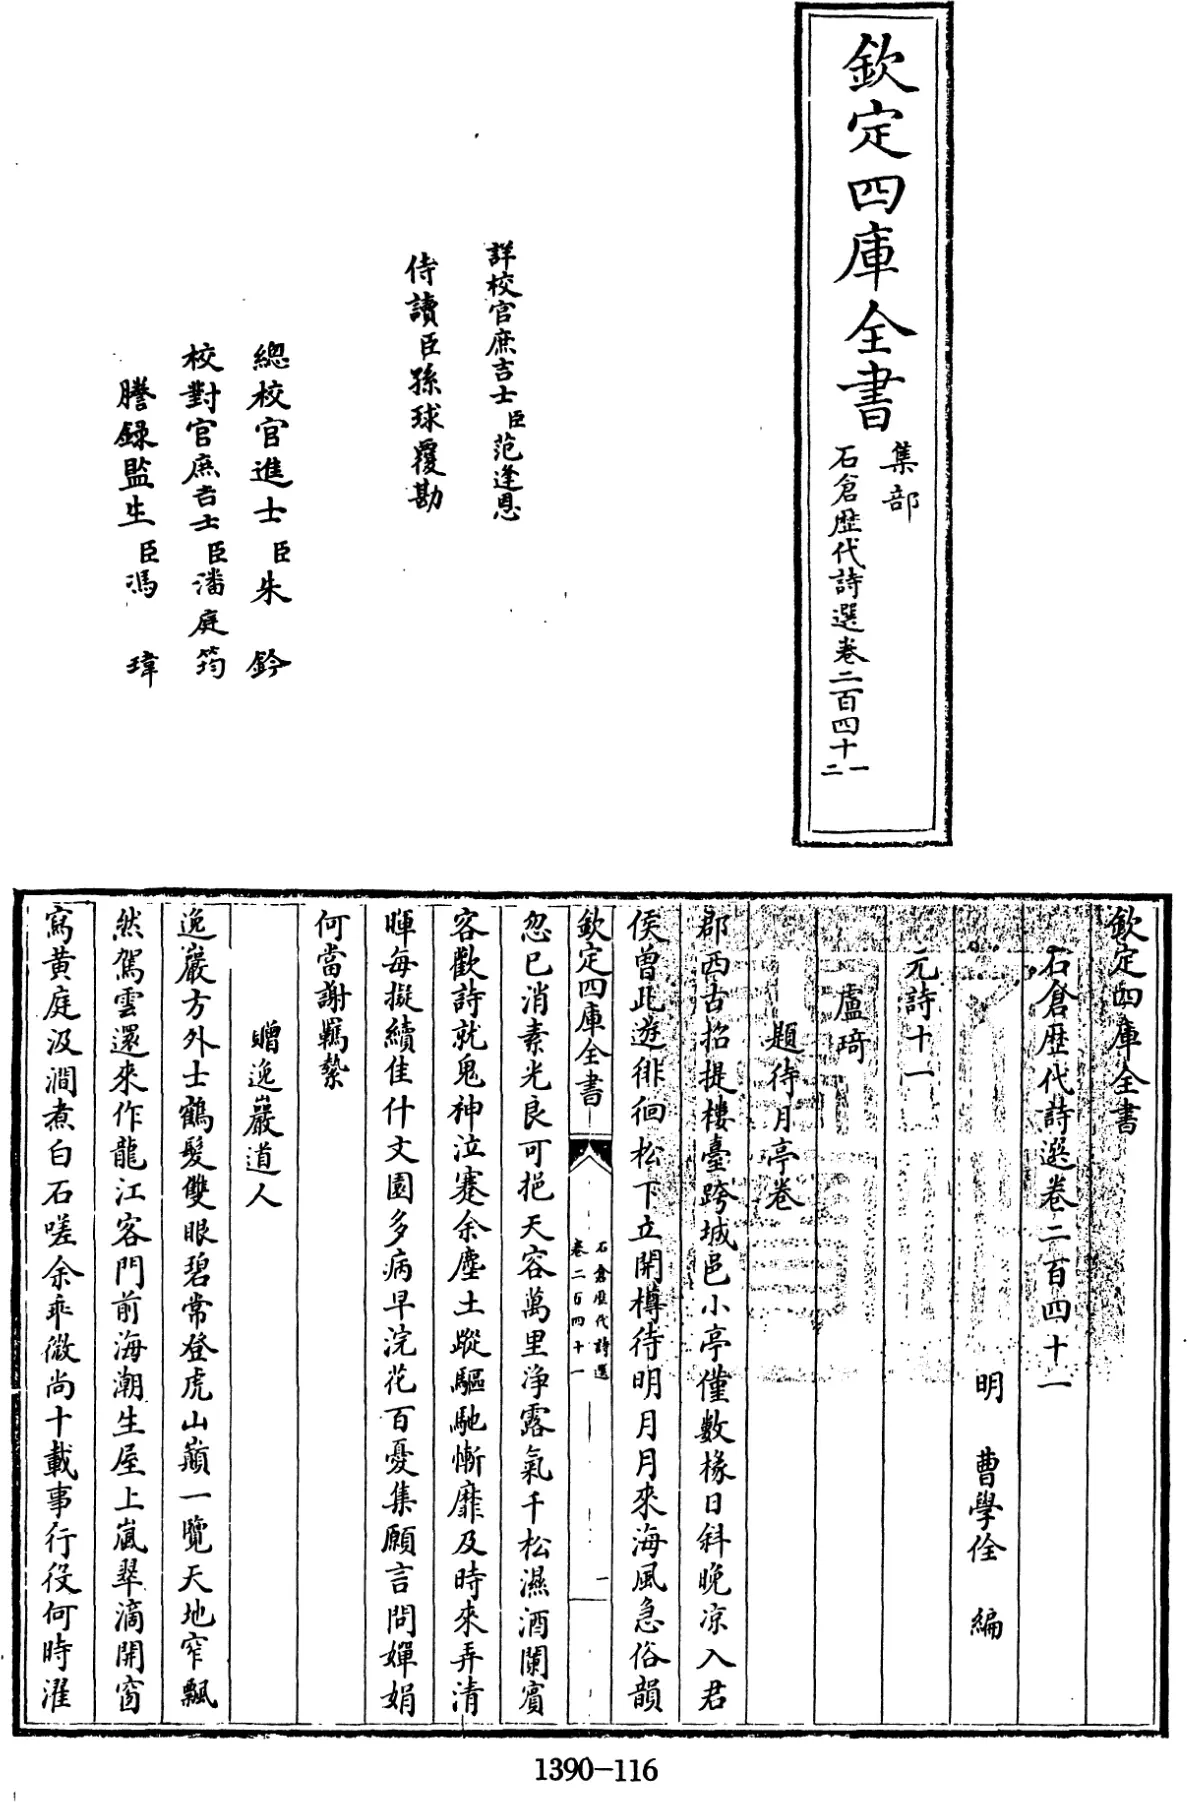 欽定四庫全書
集部
石倉歷代詩選卷二百四十一
二
詳校官庶吉士臣范逢恩
侍讀臣孫球覆勘
總校官進士臣朱鈐
校對官庶吉士臣潘庭筠
謄錄監生臣馮瑋
欽定四庫全書
石倉歷代詩選卷二百四十一
明 曹學佺 編
元詩十一
盧琦
題待月亭卷
郡西古招提樓臺跨城邑小亭僅數椽日斜晚凉入君
侯曾此遊徘徊松下立開樽待明月月來海風急俗韻
欽定四庫全書
石倉歷代詩選
卷二百四十一
一
忽已消素光良可挹天容萬里淨露氣千松濕酒闌賓
客歡詩就鬼神泣蹇余塵土蹤驅馳慚靡及時來弄清
暉每擬續佳什文園多病早浣花百憂集願言問嬋娟
何當謝羈縶
贈逸巖道人
逸巖方外士鶴髮雙眼碧常登虎山巔一覽天地窄飄
然駕雲還來作龍江客門前海潮生屋上嵐翠滴開窗
寫黄庭汲澗煮白石嗟余乖微尚十載事行役何時濯
1390-116